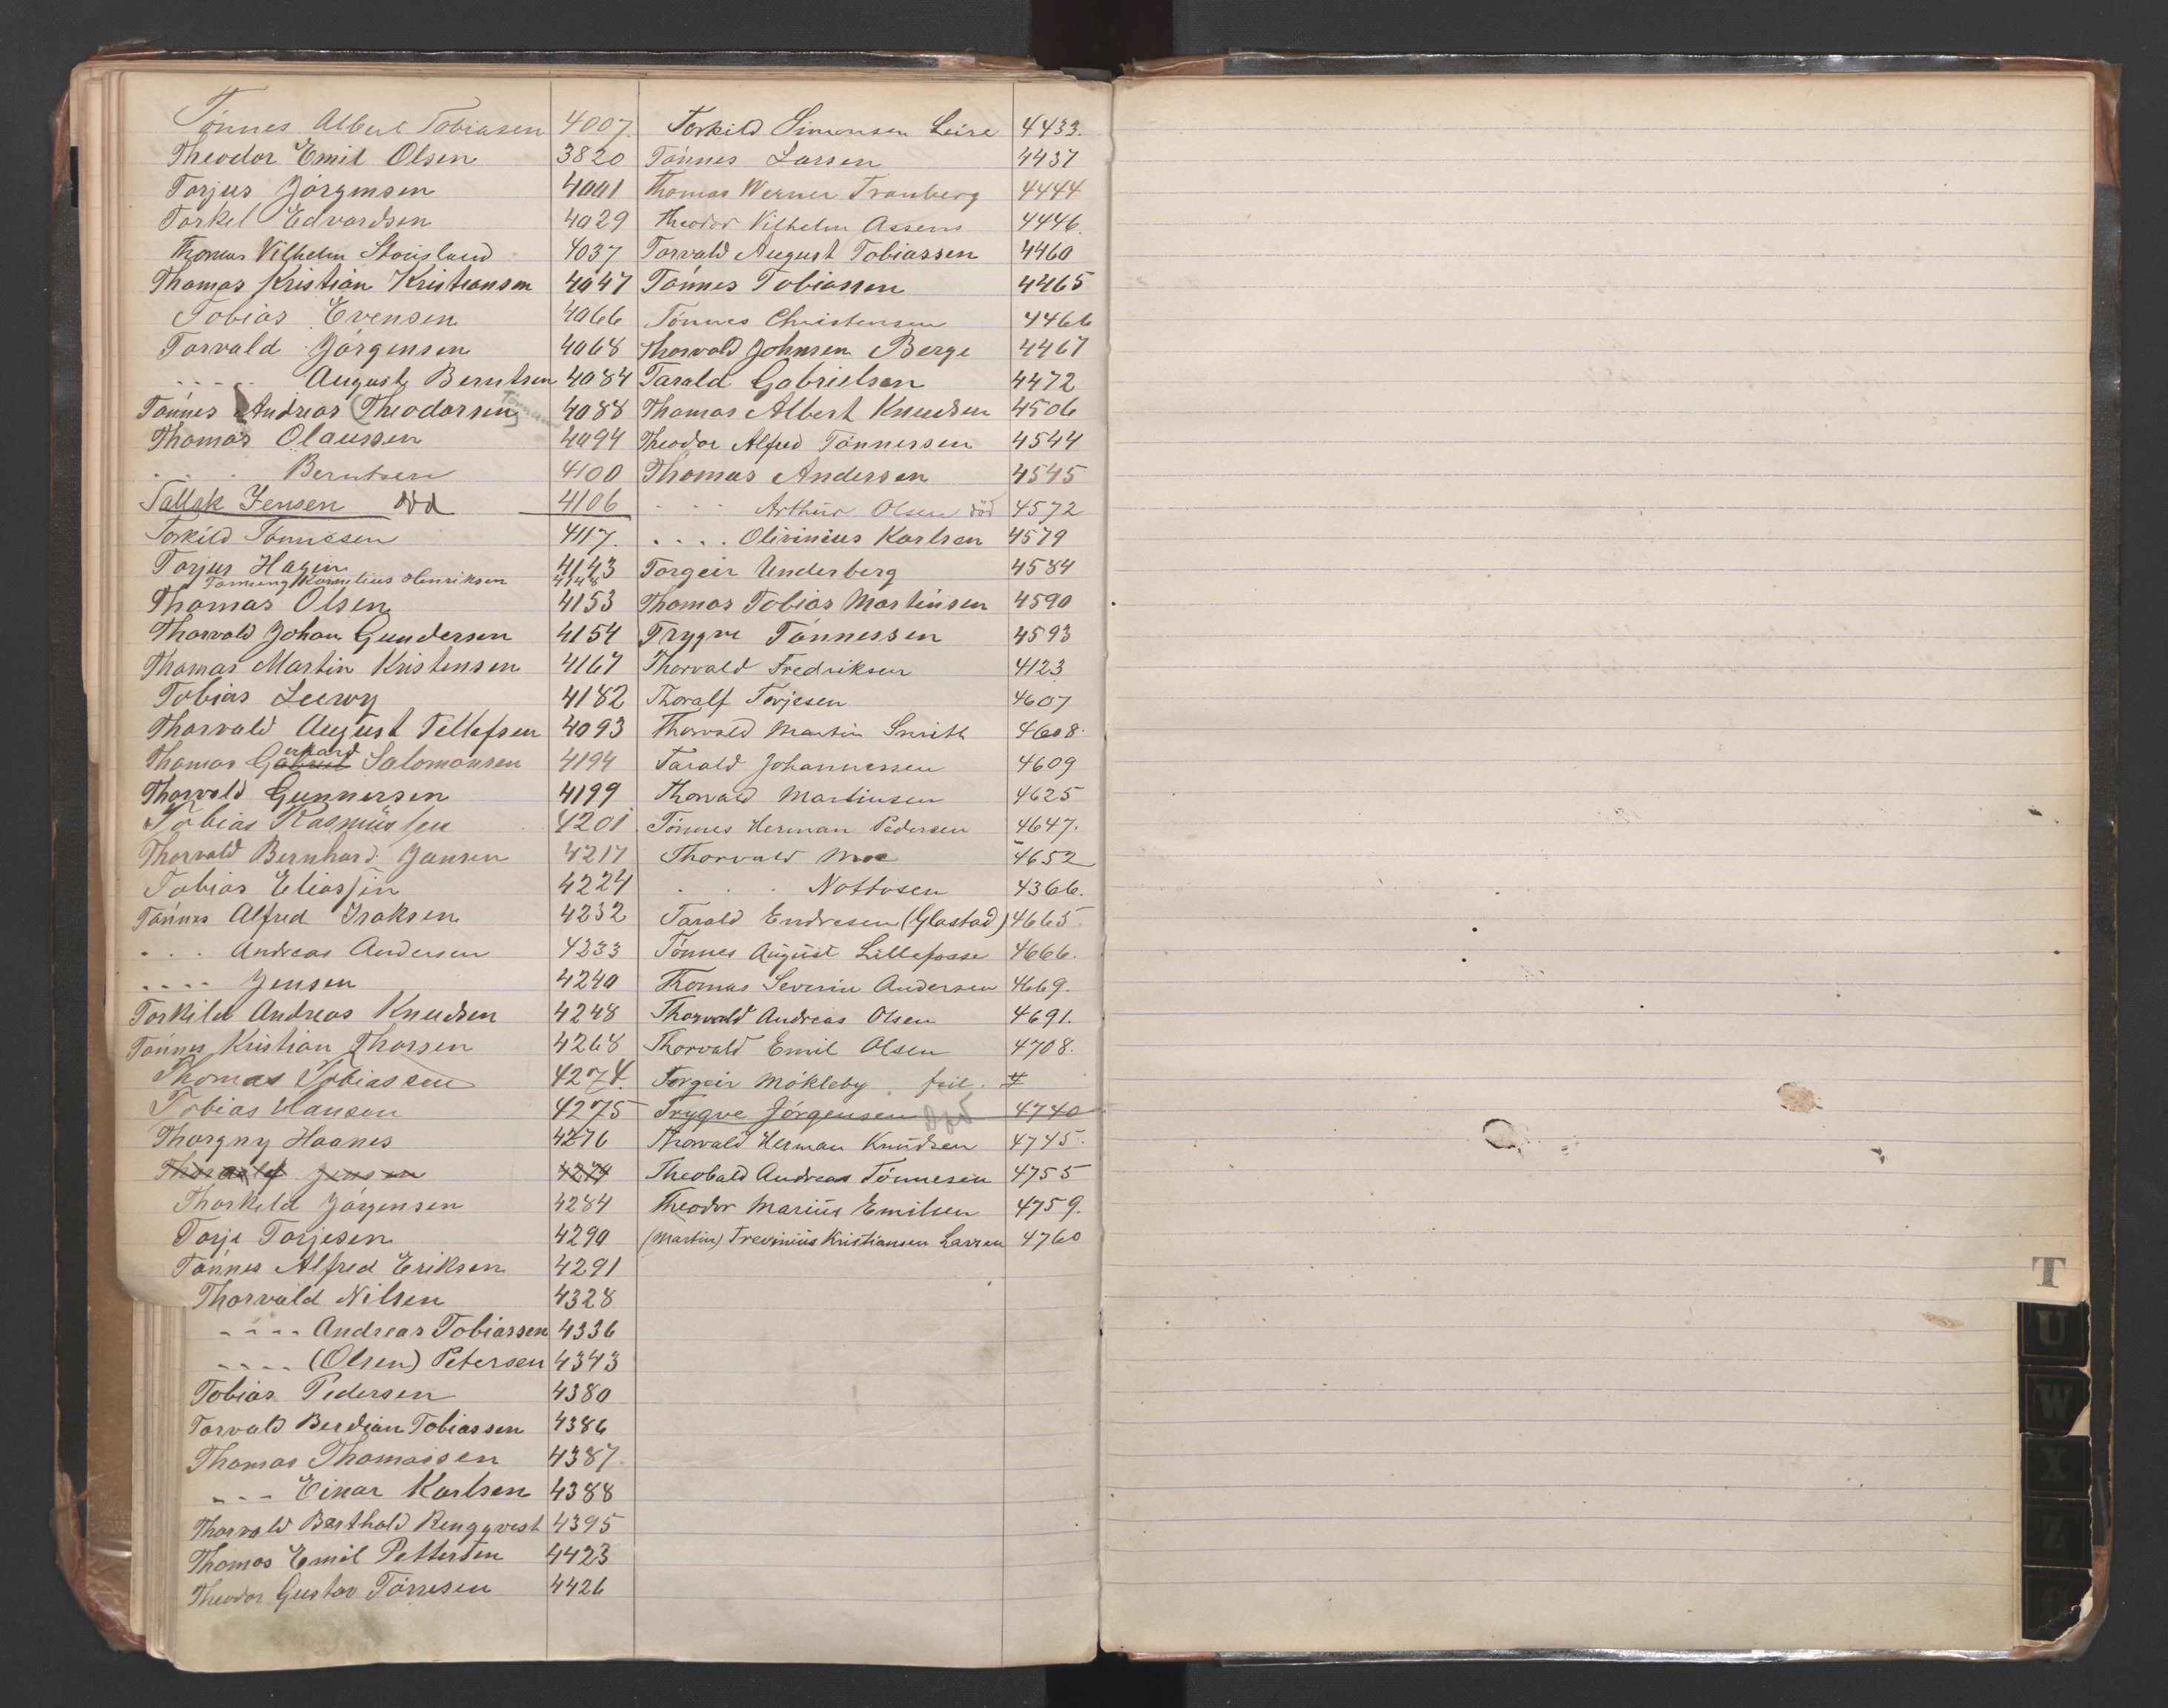 Tönnes Albert Tobiasen 4007.
Theodor Emil Olsen 3820
Torjus Jörgensen 4001
Torkel Edvardsen 4029
Thomas Vilhelm 4037
Thomas Kristian Kristiansen 4047
Tobias Evensen 4066
Torvald Jörgensen 4068
- - - - - August Berntsen 4084
Tönnes Andreas (Theodorsen) 4088
Thomas Olaussen 4094
. . . Berntsen 4100
Tallak Jensen död 4106
Torkild Tönnesen 4117.
Torjus Hagen 4143
Kornelius Henriksen 4148
Thomas Olsen 4153
Thorvald Johan Gundersen 4154
Thomas Martin Kristensen 4167
Tobias 4182
Thorvald August Tellefsen 4093
Thomas Gabriel erhard Salomonsen 4194
Thorvald Gunnersen 4199
Tobias Rasmüssen 4201
Thorvald Bernhard Jansen 4217
Tobias Eliassen 4224
Tönnes Alfred Isaksen 4232
. . . Andreas Andersen 4233
- - - - Jensen 4240
Torkild Andreas Knudsen 4248
Tönnes Kristian Thorsen 4268
Thomas Tobiassen 4274.
Tobias Hansen 4275
Thorgny Haanes 4276
Jensen 4274
Thorkild Jörgensen 4284
Torje Torjesen 4290
Tönnes Alfred Eriksen 4291
Thorvald Nilsen 4328
- - - - Andreas Tobiassen 4336
- - - - (Olsen) Petersen 4343
Tobias Pedersen 4380
Torvald Berdian Tobiassen 4386
Thomas Thomassen 4387.
- - - Einar Karlsen 4388
Thorvald Barthold Rengqvest 4395
Thomas Emil Pettersen 4423
Theodor Gustav Törresen 4426
Torkild Simonsen Leire 4433.
Tönnes Larsen 4437
Thomas Werner Tranberg 4444
Theodor Vilhelm Assens 4446.
Torvald August Tobiassen 4460
Tönnes Tobiassen 4465
Tönnes Christensen 4466
Thorvald Johnsen Berge 4467
Tarald Gabrielsen 4472
Thomas Albert Knudsen 4506
Theodor Alfred Tönnessen 4544
Thomas Andersen 4545
- - - Arthür Olsen död 4572
. . . . Olivinius Karlsen 4579
Torgeir Underberg 4584
Thomas Tobias Martinsen 4590
Trygve Tönnessen 4593
Thorvald Fredriksen 4123
Thoralf Torjesen 4607
Thorvald Martin Smith 4608.
Tarald Johannessen 4609
Thorvald Martinsen 4625
Tönnes Herman Pedersen 4647.
Thorvald Moe 4652
. . . Nottosen 4366.
Tarald Endresen (Glastad) 4665.
Tönnes August Lillefosse 4666.
Thomas Severin Andersen 4669.
Thorvald Andreas Olsen 4691.
Thorvald Emil Olsen 4708.
Torgeir Mökleby feil. #
Trygve Jörgensen död 4740
Thorvald Herman Knudsen 4745.
Theobald Andreas Tönnesen 4755
Theodor Mariüs Emilsen 4759.
(Martin) Trevinius Kristiansen Larsen 4760
T
U
W
X
Z